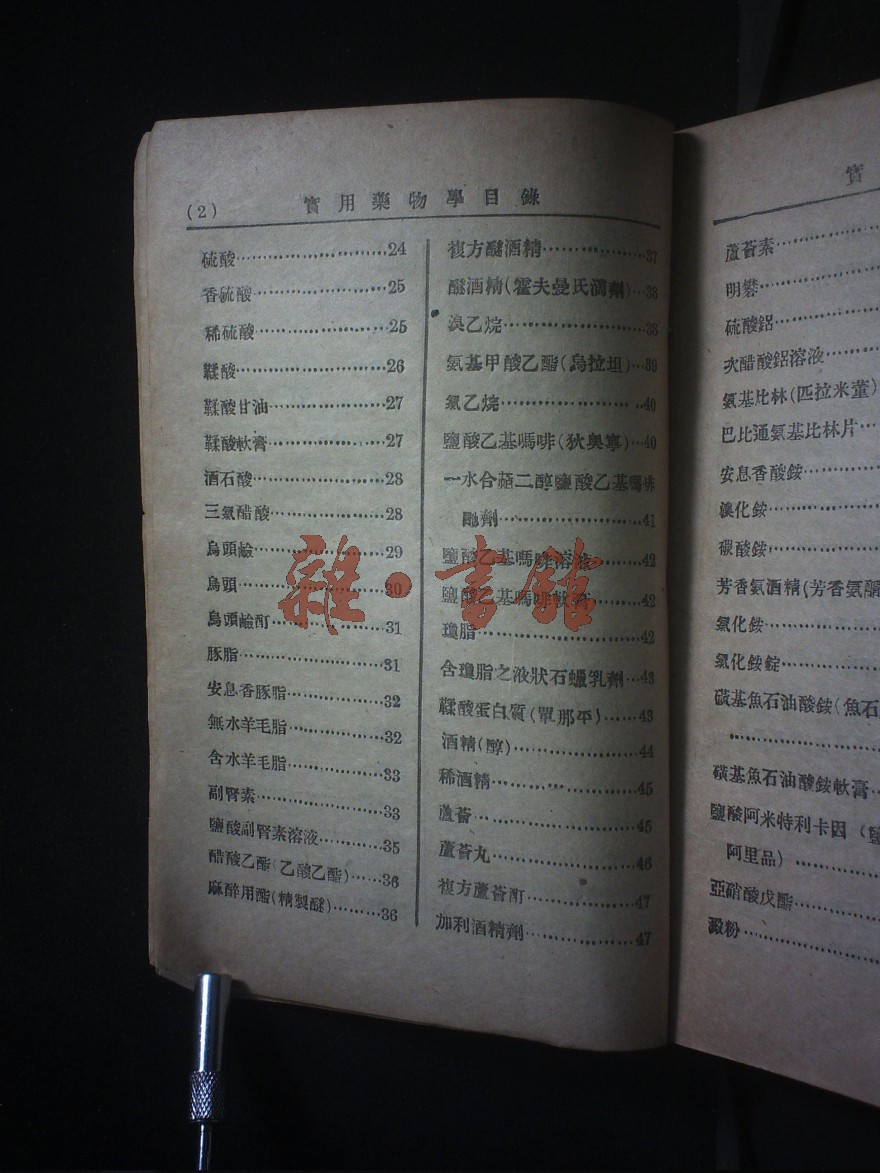 (2)
實用藥物學目錄
硫酸……………………24
香硫酸…………………25
稀硫酸…………………25
鞣酸……………………26
鞣酸甘油………………27
鞣酸軟膏………………27
酒石酸…………………28
三氯醋酸………………28
烏頭鹼…………………29
烏頭……………………30
烏頭鹼酊………………31
豚脂……………………31
安息香豚脂……………32
無水羊毛脂……………32
含水羊毛脂……………33
副腎素…………………33
鹽酸副腎素溶液………35
醋酸乙酯(乙酸乙酯)……36
麻醉用酯(精製醚)………36
複方醚酒精……………37
醚酒精(霍夫曼氏滴劑)…38
溴乙烷…………………38
氨基甲酸乙酯(烏拉坦)…39
氯乙烷…………………40
鹽酸乙基嗎啡(狄奧寧)…40
一水合萜二醇鹽酸乙基嗎啡
酏劑……………………41
鹽酸乙基嗎啡溶液……42
鹽酸乙基嗎啡軟膏……42
瓊脂……………………42
含瓊脂之液狀石蠟乳劑…43
鞣酸蛋白質(單那平)……43
酒精(醇)………………44
稀酒精…………………45
蘆薈……………………45
蘆薈丸…………………46
複方蘆薈酊……………47
加利酒精劑……………47
實
蘆薈素…………
明礬……………
硫酸鋁…………
次醋酸鋁溶液………
氨基比林(匹拉米董)
巴比通氨基比林片…
安息香酸銨…………
溴化銨…………
碳酸銨…………
芳香氨酒精(芳香氨酯
氯化銨…………
氯化銨錠…………
磺基魚石油酸銨(魚石
……………
磺基魚石油酸銨軟膏…
鹽酸阿米特利卡因(鹽
阿里品)…………
亞硝酸戊酯…………
澱粉……………
雜·書館